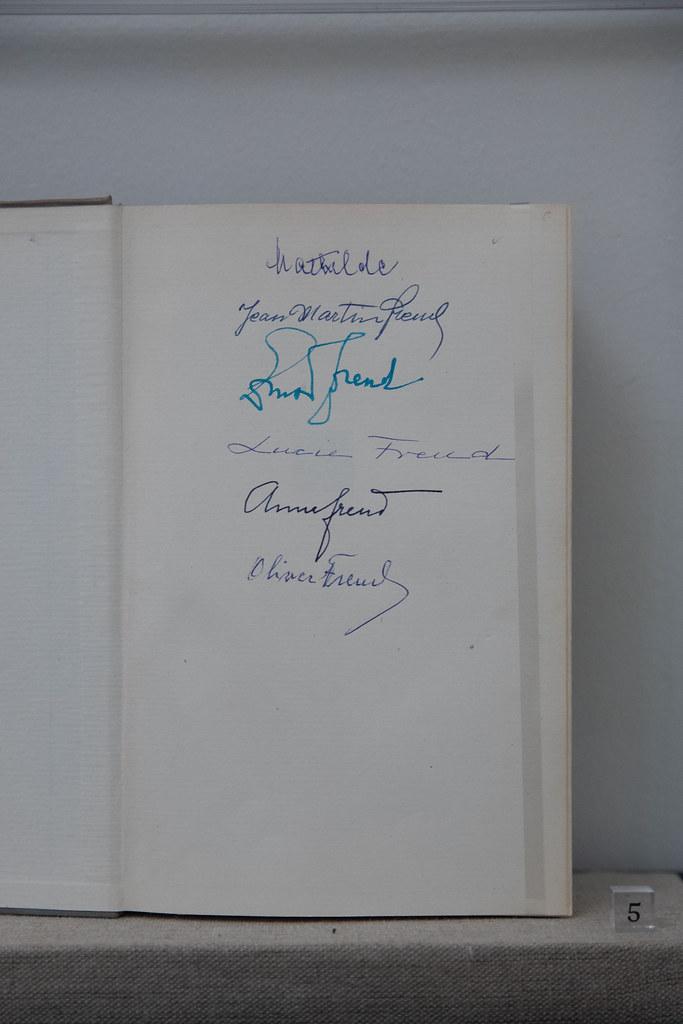 Mathilde
Jean Martin Freud
Ernst Freud
Lucie Freud
Anna Freud
Oliver Freud
5